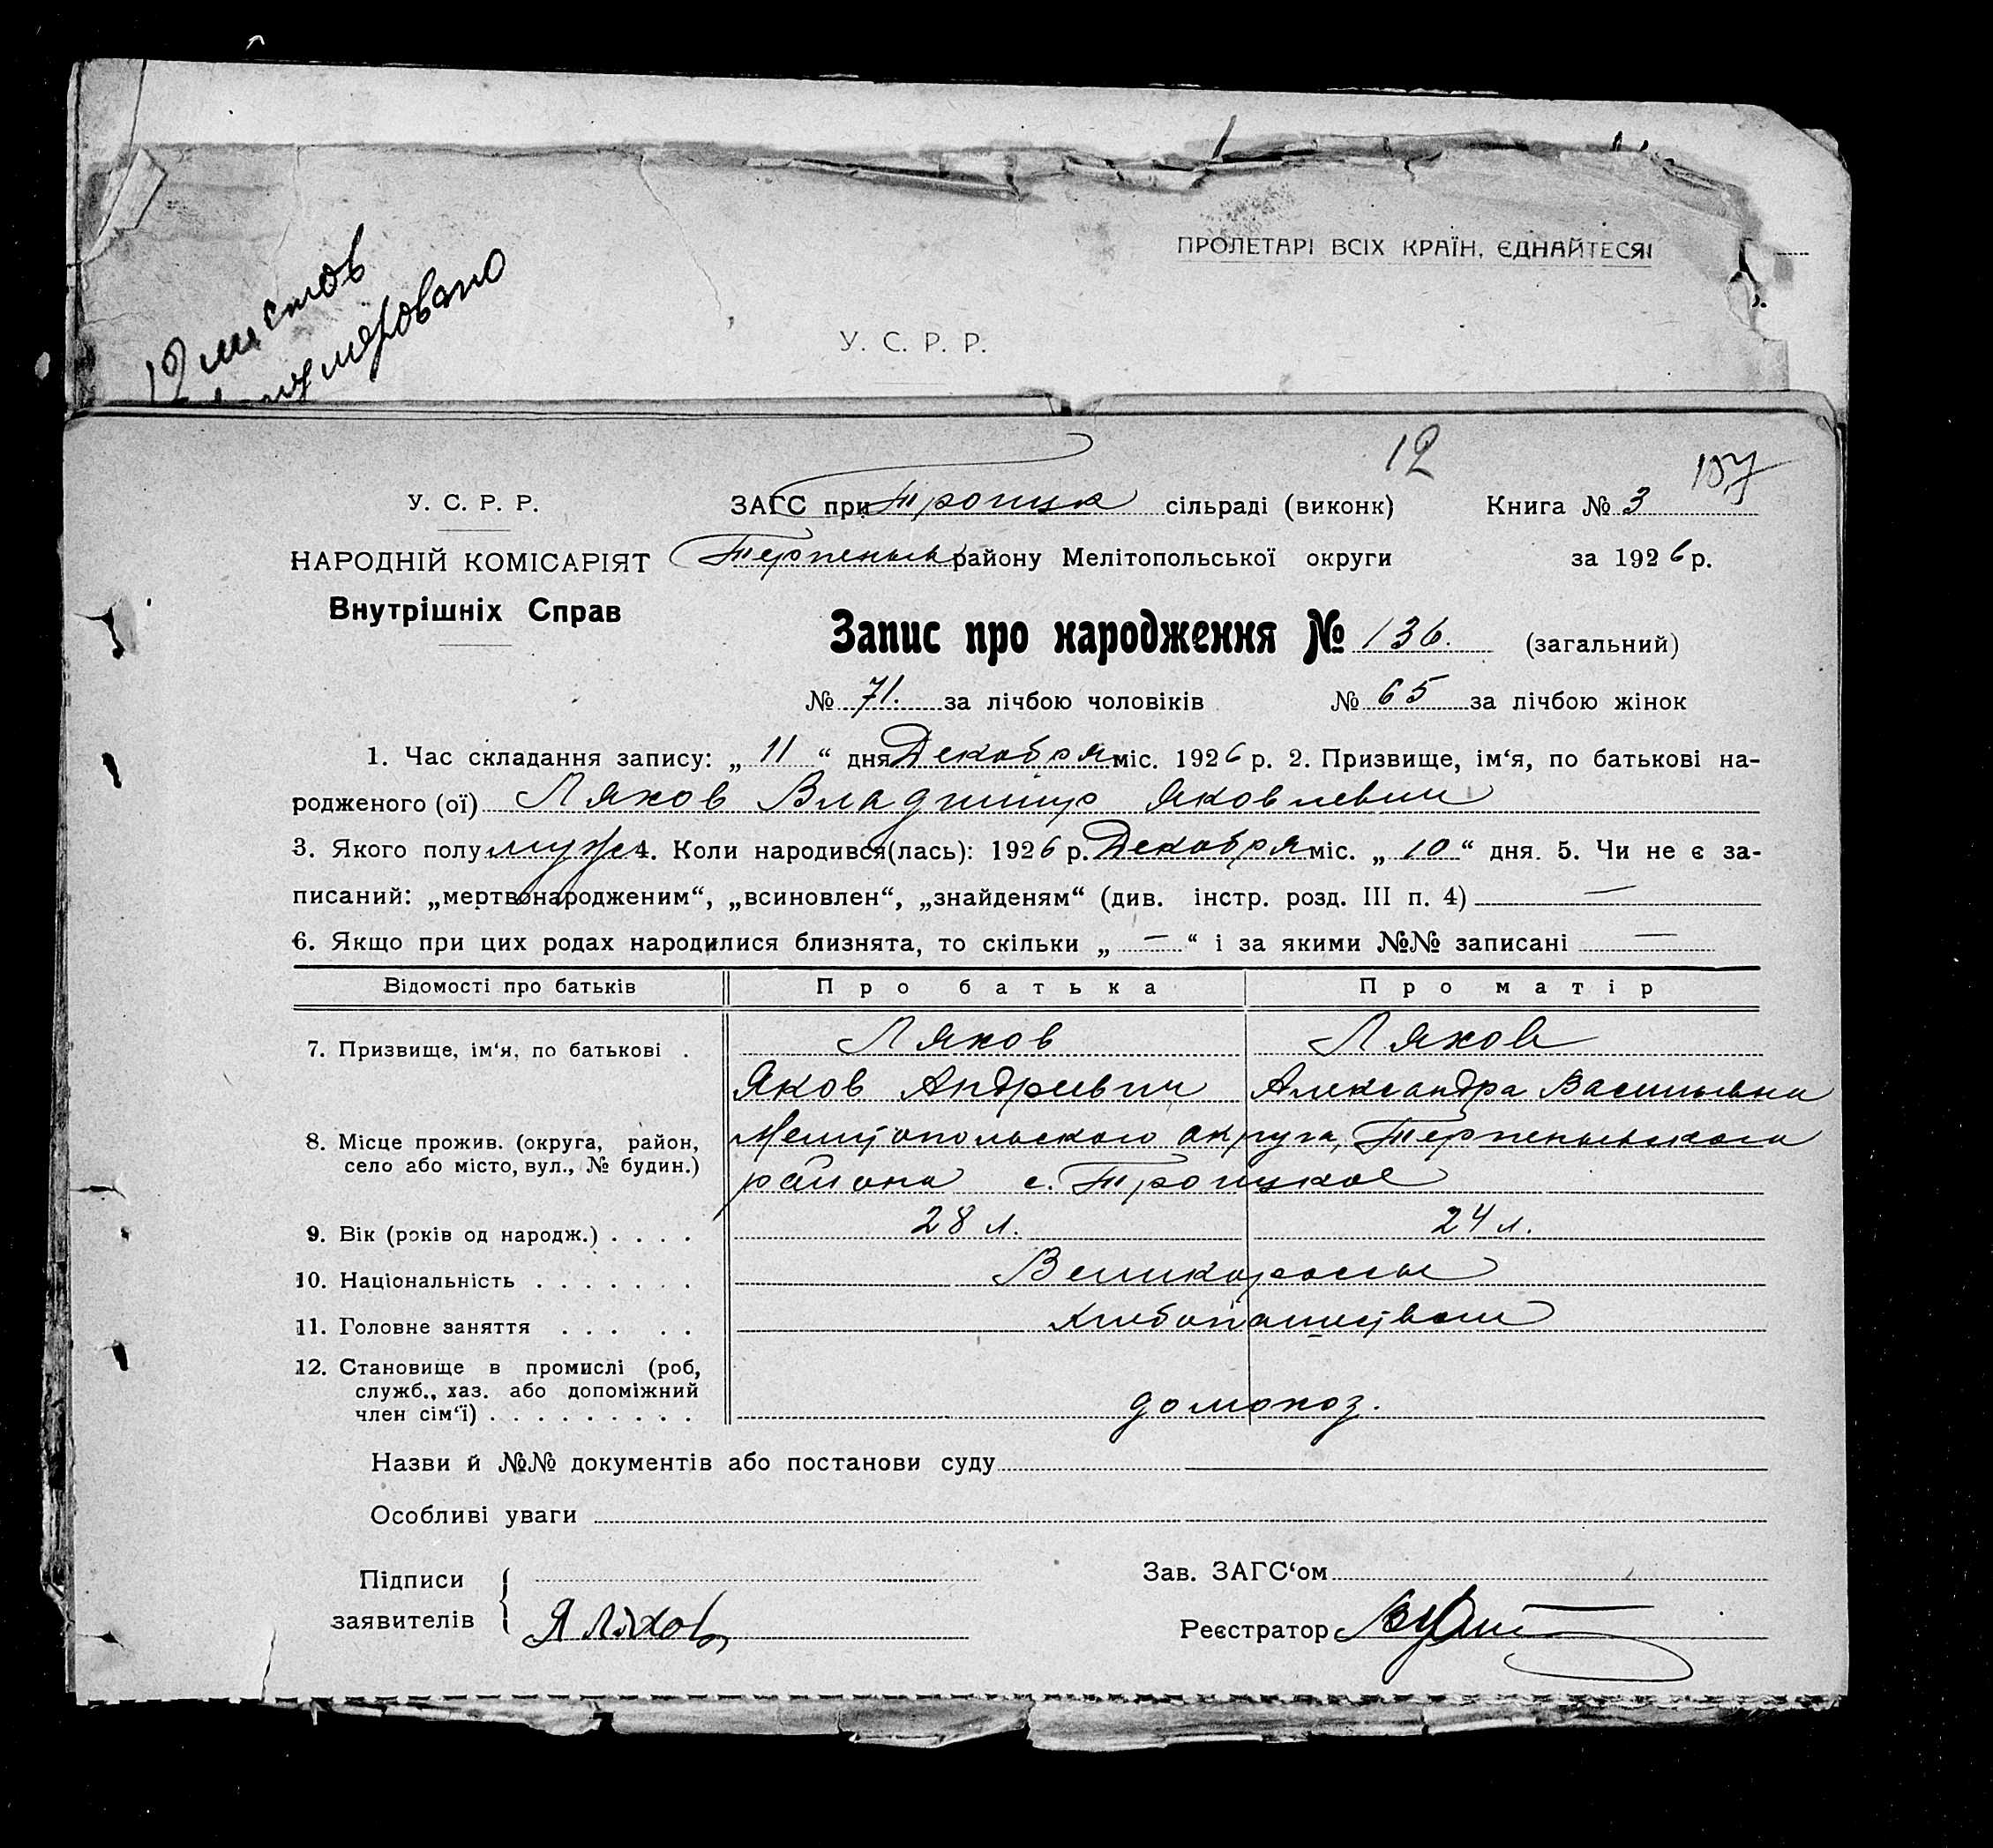 12 листов
пронумеровано
ПРОЛЕТАРІ ВСІХ КРАЇН, ЄДНАЙТЕСЯ!
У. С. Р. Р.
12
157
У. С. Р. Р.
ЗАГС при Троицк сільраді (виконк) Книга № 3
НАРОДНІЙ КОМІСАРІЯТ
Терпеньев району Мелітопольської округи за 1926 р.
Внутрішніх Справ
Запис про народження № 136. (загальний)
№ 71. за лічбою чоловіків № 65 за лічбою жінок
1. Час складання запису: „ 11 “ дня Декабря міс. 1926 р. 2. Призвище, ім‘я, по батькові на-
родженого (ої) Ляхов Владимир Яковлевич
3. Якого полу муж 4. Коли народився(лась): 1926 р. Декабря міс. „ 10 “ дня. 5. Чи не є за-
писаний: „мертвонародженим“, „всиновлен“, „знайденям“ (див. інстр. розд. III п. 4) —
6. Якщо при цих родах народилися близнята, то скільки „ — “ і за якими №№ записані —
Відомості про батьків Про батька Про матір
7. Призвище, ім‘я, по батькові . Ляхов Ляхова
Яков Андреевич Александра Васильевна
8. Місце прожив. (округа, район, Мелитопольского округа, Терпеньевского
село або місто, вул., № будин.) района с. Троицкое
9. Вік (років од народж.) . . . . 28 л. 24 л.
10. Національність . . . . . . . Великороссы
11. Головне заняття . . . . . Хлебопашеством
12. Становище в промислі (роб,
служб., хаз. або допоміжний
член сім‘ї) . . . . . . . . . домохоз.
Назви й №№ документів або постанови суду
Особливі уваги
Підписи
заявителів
Я Ляхов
Зав. ЗАГС‘ом
Реєстратор